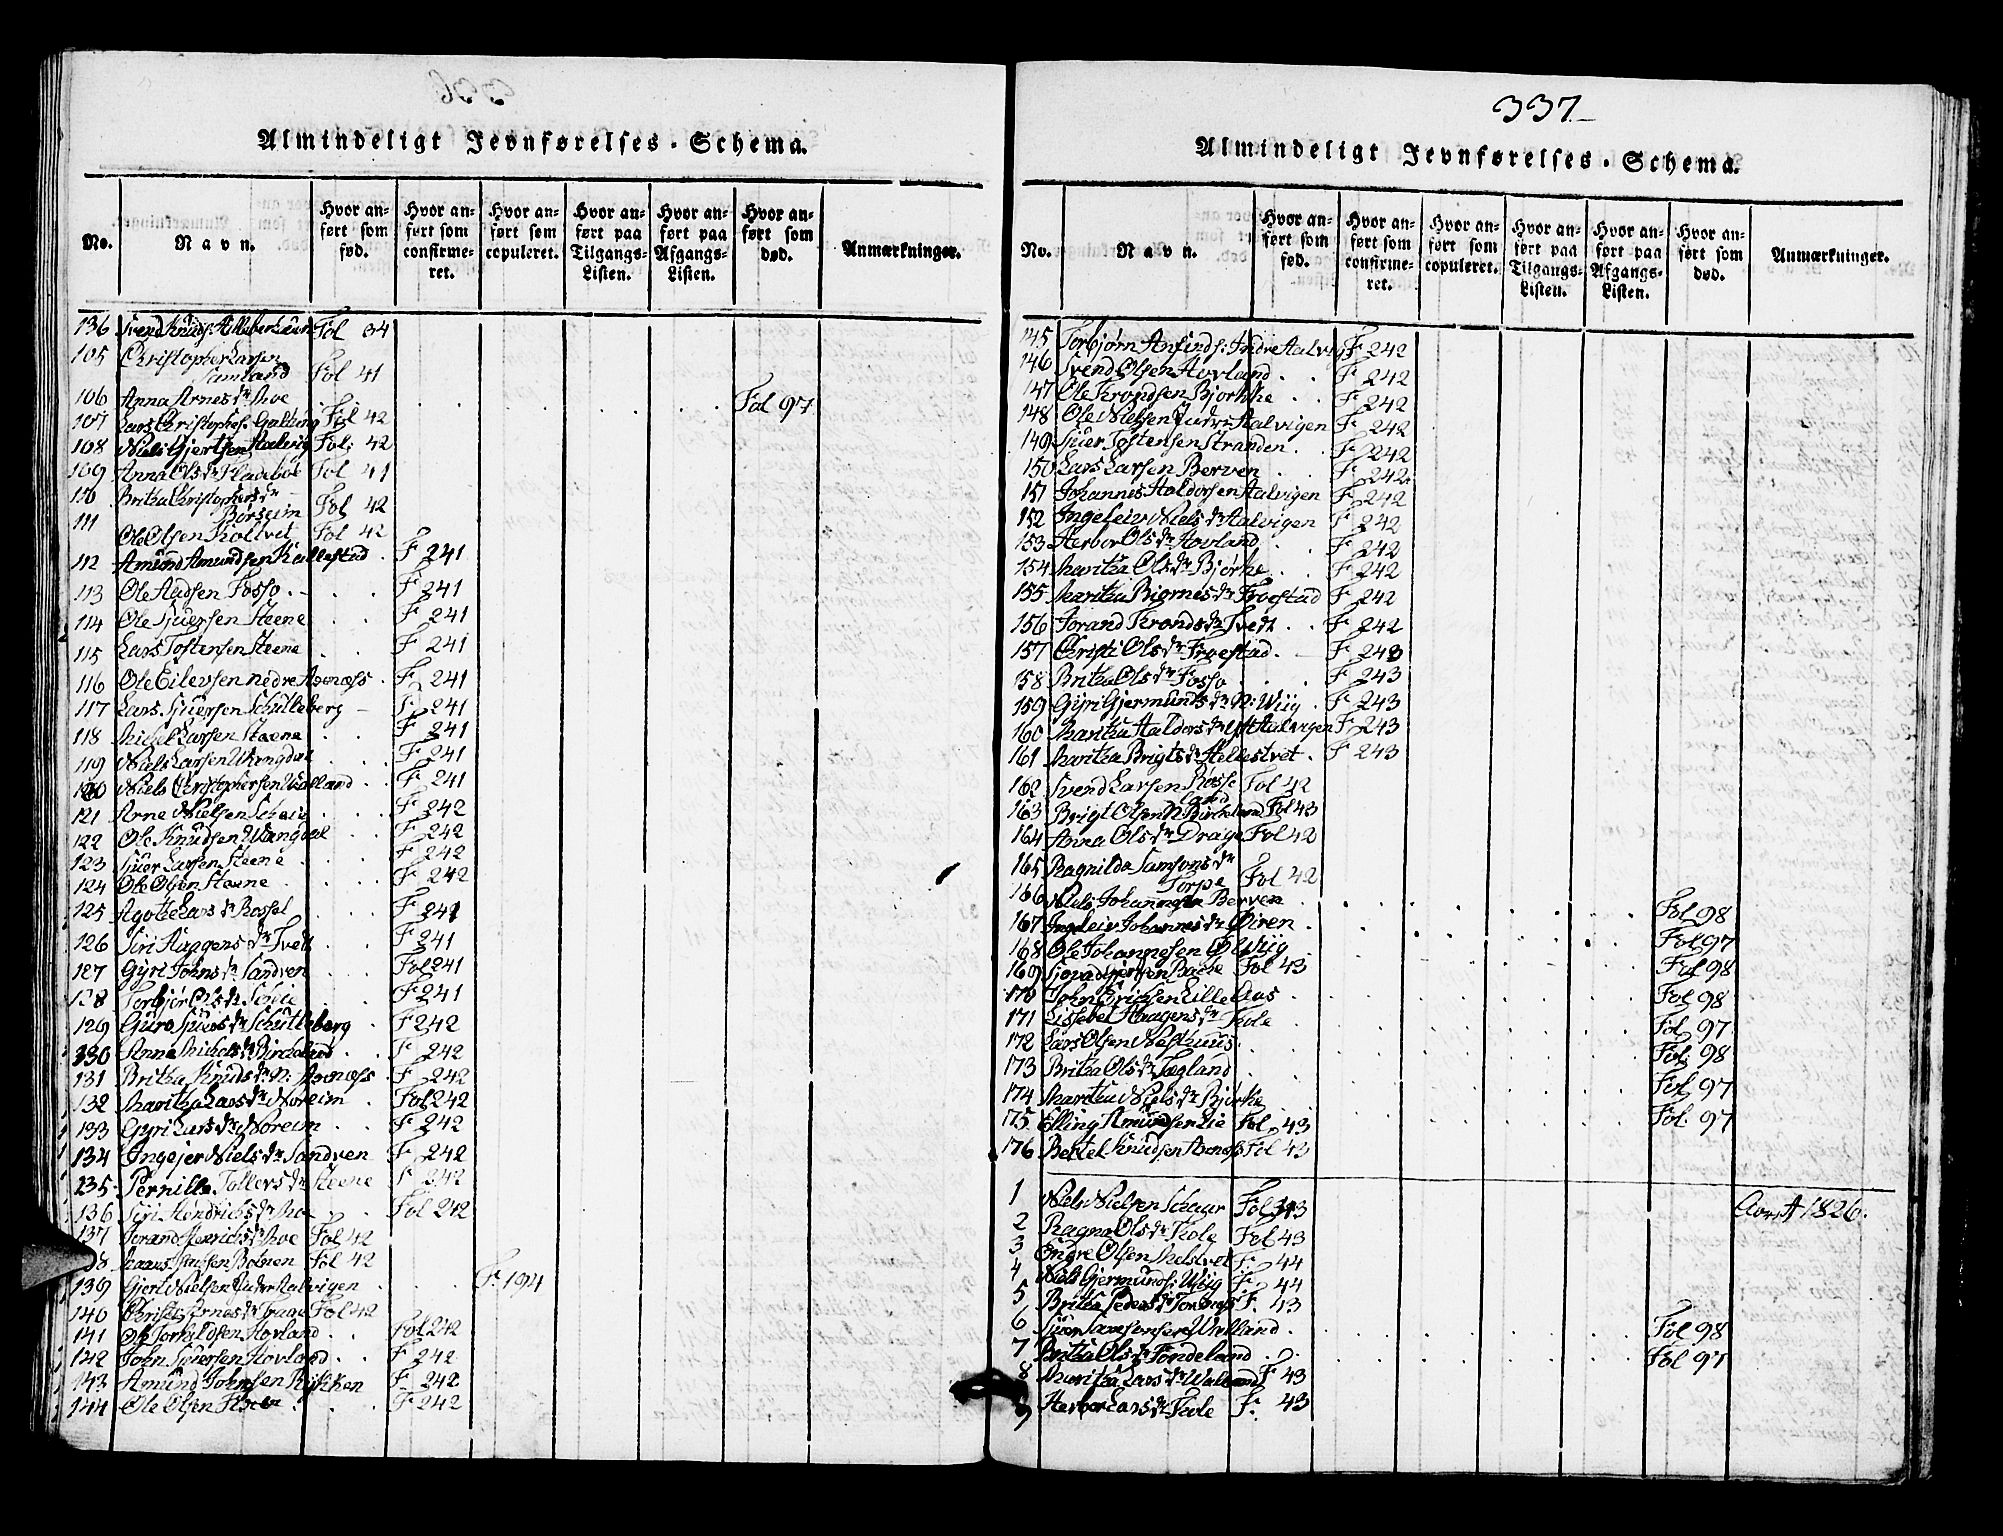 Almindeligt Jevnførelses-Schema.
No.
Navn.
Hvor anført som fød.
Hvor anført som confirmeret.
Hvor anført som copuleret.
Hvor anført paa Tilgangs-Listen.
Hvor anført paa Afgangs-Listen.
Hvor anført som død.
Anmærkninger.
136 Svend Knuds: Fol 34
105 Christopher Larsen
Samland Fol 41
106 Anna Arnes dr Moe Fol 97
107 Lars Christophes: Galtung Fol 42
108 Niels Gjertsen Aalvig Fol: 42
109 Anna Ols dr Fladebøe Fol 41
110 Britha Christophers dr
Børseim Fol 42
111 Ole Olsen Koltvet Fol 42
112 Amund Amundsen Kallestad F 241
113 Ole Aadsen Fosso F 241
114 Ole Sjursen Steene F 241
115 Lars Tostensen Steene F 241
116 Ole Eilevsen nedre Axenæss F 241
117 Lars Sjursen Schutleberg F 241
118 Michel Larsen Steene F 241
119 Niels Larsen Wangdal F 241
120 Niels Christophersen Walland F 241
121 Arne Nielsen Scheie F 242
122 Ole Knudsen Wangdal F 242
123 Sjur Larsen Steene F 242
124 Ole Olsen Steene F 242
125 Agothe Lars dr Rossel F 241
126 Siri Haagens dr Tvedt F 241
127 Gyri Johns dr Sandven Fol 241
128 Torbjør Ols dr Scheie F 241
129 Guro Sjurs dr Schutleberg F 242
130 Anna Michels dr Birkeland F 242
131 Britha Knuds dr N: Axenæss F 242
132 Maritha Lars dr Noreim Fol 242
133 Gyri Lars dr Noreim F 242
134 Ingejer Niels dr Sandven F 242
135 Pernilla Tollevs dr Steene F 242
136 Siri Hendrichs dr Moe Fol 242
137 Torand Henrichs dr Moe Fol 42
Botnen Fol 42
139 Gjert Nielsen Indre Aalvigen F. 194
140 Christi Arnes dr Drage Fol 42
141 Ole Torkildsen Hovland Fol 242
142 John Sjursen Hovland F 242
143 Amund Johnsen Rykken F 242
144 Ole Olsen F 242
337
Almindeligt Jevnførelses-Schema.
No.
Navn.
Hvor anført som fød.
Hvor anført som confirmeret.
Hvor anført som copuleret.
Hvor anført paa Tilgangs-Listen.
Hvor anført paa Afgangs-Listen.
Hvor anført som død.
Anmærkninger.
145 Torbjørn Anfinds: Indre Aalvig F 242
146 Svend Olsen Hovland F 242
147 Ole Trondsen Bjørkke F 242
148 Ole Nielsen Indre Aalvigen F 242
149 Sjuer Tostensen Stranden F 242
150 Lars Larsen Berven F 242
151 Johannes Haldorsen Aalvigen F 242
152 Ingeleiv Niels dr Aalvigen F 242
153 Herbor Ols dr Hovland F 242
154 Maritha Ols dr Bjørke F 242
155 Maritha Biørnes dr Froestad F 242
156 Jorand Tronds dr Tvedt F 242
157 Christi Ols dr Froestad F 243
158 Britha Ols dr Fosso F 243
159 Gyri Gjermunds dr N: Wiig F 243
160 Maritha Haldors dr Aalvigen F 243
161 Maritha Brigts dr Hellestvet F 243
162 Svend Larsen Rosse
land Fol 42
163 Brigt Olsen N Birkeland Fol 43
164 Anna Ols dr Drage Fol 42
165 Ragnilda Samsons dr
Torpe Fol 42
166 Niels Johannesen Berven Fol 98
167 Ingeleiv Johannes dr Øiren Fol 97
168 Ole Johannesen Ø Wiig Fol 98
169 Bache Fol 43
170 John Erichsen Lille Aas Fol 98
171 Lissebet Haagens dr Fol 97
172 Lars Olsen Nesthuus Fol. 98
173 Britha Ols dr Tægland Fol. 97
174 Maritha Niels dr Bjørke Fol. 97
175 Elling Amundsen Lie Fol. 43
176 Bettel Knudsen Axenæss Fol 43
Aaret 1826.
1 Niels Nielsen Schaar Fol 43
2 Ragna Ols dr Fol 43
3 Endre Olsen Melstvet F. 44
4 Niels Gjermunds: Wiig F. 44
5 Britha Peders dr F. 43
6 Sjuer Samsonsen Walland Fol 98
7 Britha Ols dr Tondeland Fol 97
8 Maritha Lars dr Walland F 43
9 Herbor Lars dr F. 43